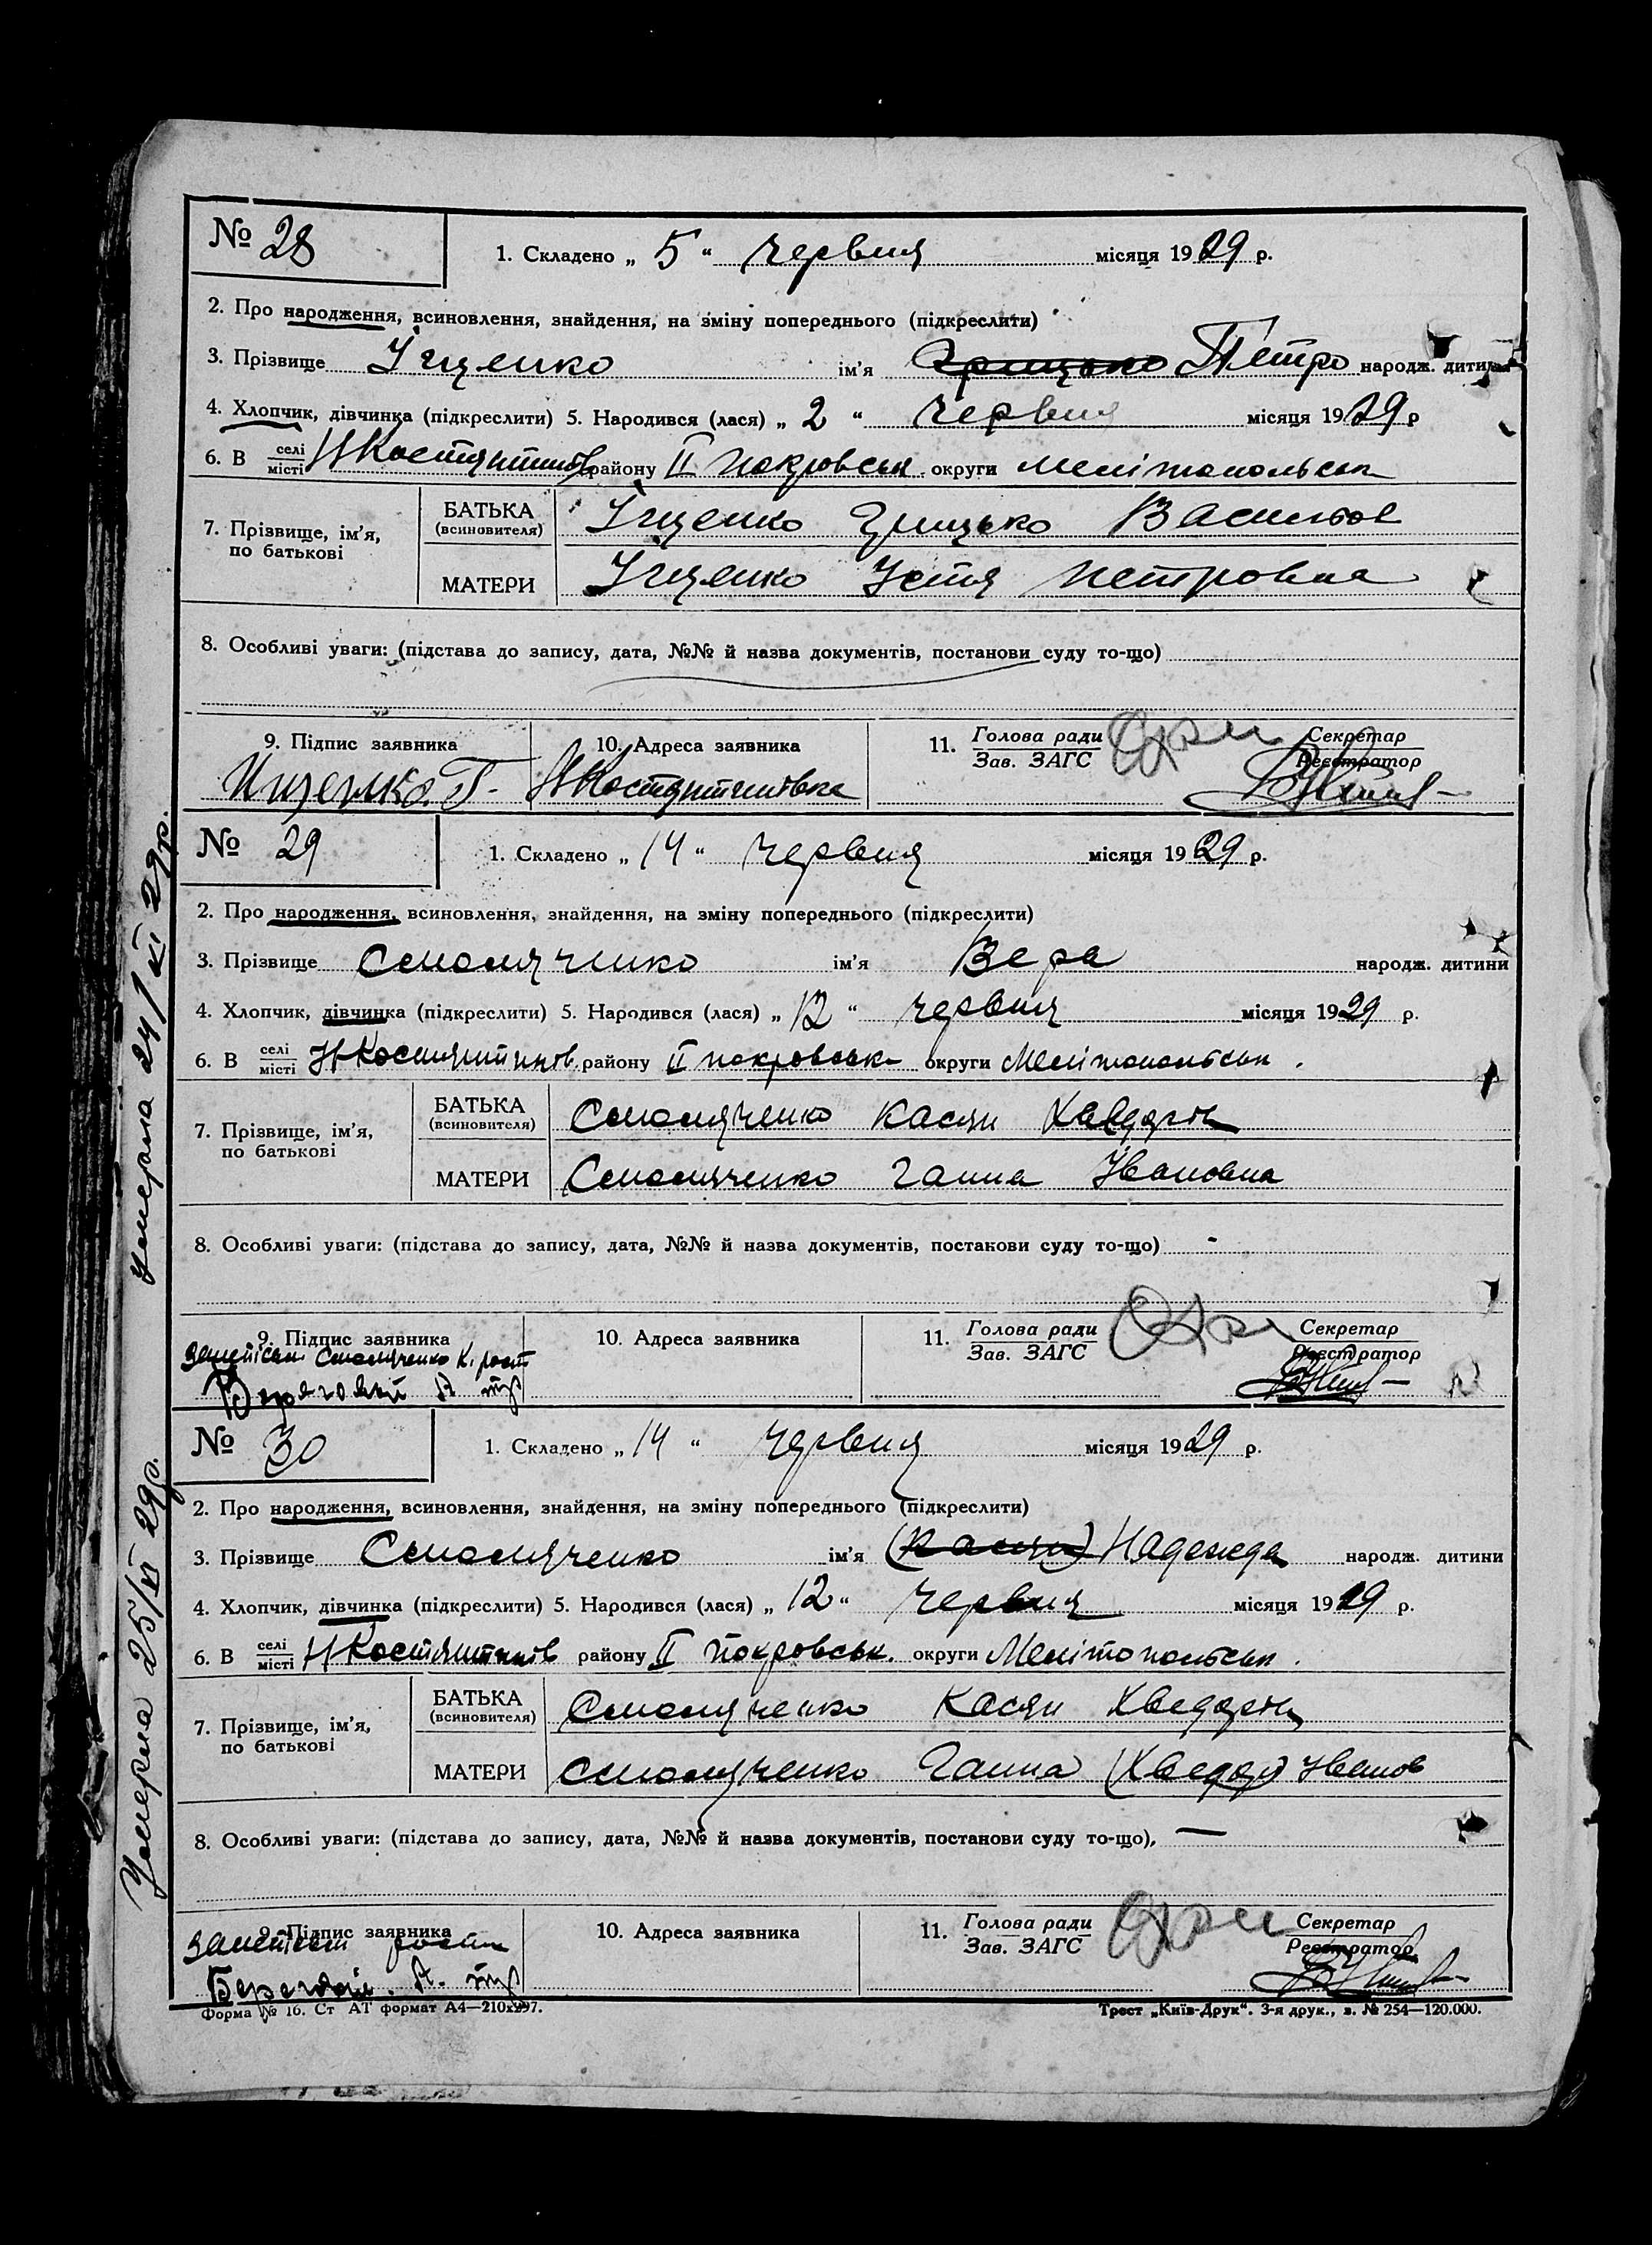 № 28
1. Складено „ 5 “ червня місяця 1929 р.
2. Про народження, всиновлення, знайдення, на зміну попереднього (підкреслити)
3. Прізвище Іщенко ім'я Грицько Петро народж. дитини
4. Хлопчик, дівчинка (підкреслити) 5. Народився (лася) „ 2 “ червня місяця 1929 р
6. В селі місті Н Костянтинів району ІІ Покровськ округи Мелітопольськ
7. Прізвище, ім'я, по батькові
БАТЬКА (всиновителя) Іщенко Грицько Васильов
МАТЕРИ Іщенко Устя Петровна
8. Особливі уваги: (підстава до запису, дата, №№ й назва документів, постанови суду то-що)
9. Підпис заявника 10. Адреса заявника 11. Голова ради Зав. ЗАГС Секретар Реєстратор
Ищенко Г. Н Костянтинівка
№ 29
1. Складено „ 14 “ червня місяця 1929 р.
2. Про народження, всиновлення, знайдення, на зміну попереднього (підкреслити)
3. Прізвище Смоляченко ім'я Вера народж. дитини
4. Хлопчик, дівчинка (підкреслити) 5. Народився (лася) „ 12 “ червня місяця 1929 р.
6. В селі місті Н Костянтинів. району ІІ Покровськ округи Мелітопольськ.
7. Прізвище, ім'я, по батькові
БАТЬКА (всиновителя) Смоляченко Касян Хведорів
МАТЕРИ Смоляченко Ганна Ивановна
8. Особливі уваги: (підстава до запису, дата, №№ й назва документів, постанови суду то-що) -
9. Підпис заявника 10. Адреса заявника 11. Голова ради Зав. ЗАГС Секретар Реєстратор
Смоляченко К.
Умерла 24/VI 29 р.
№ 30
1. Складено „ 14 “ червня місяця 1929 р.
2. Про народження, всиновлення, знайдення, на зміну попереднього (підкреслити)
3. Прізвище Смоляченко ім'я (Касян) Надежда народж. дитини
4. Хлопчик, дівчинка (підкреслити) 5. Народився (лася) „ 12 “ червня місяця 1929 р.
6. В селі місті Н Костянтинів району ІІ Покровськ. округи Мелітопольськ.
7. Прізвище, ім'я, по батькові
БАТЬКА (всиновителя) Смоляченко Касян Хведорів
МАТЕРИ Смоляченко Ганна (Хведор) Иванов
8. Особливі уваги: (підстава до запису, дата, №№ й назва документів, постанови суду то-що). —
9. Підпис заявника 10. Адреса заявника 11. Голова ради Зав. ЗАГС Секретар Реєстратор
Умерла 25/VI 29 р.
Форма № 16. Ст АТ формат А4—210x297. Трест „Київ-Друк“. 3-я друк., з. № 254—120.000.